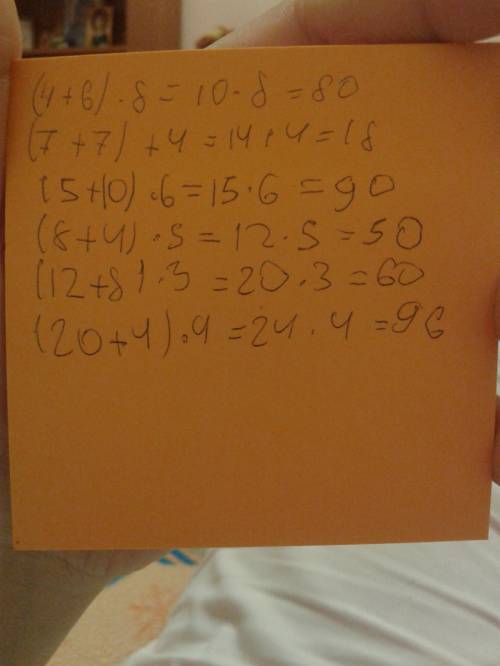 (4+6)·8=10·8=80
(7+7)+4=14+4=18
(5+10)·6=15·6=90
(8+4)·5=12·5=50
(12+8)·3=20·3=60
(20+4)·4=24·4=96